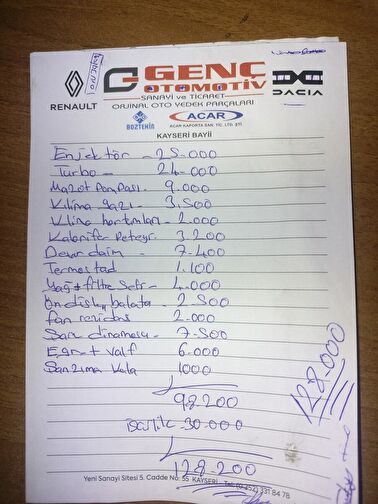 GENÇ
OTOMOTİV
SANAYİ ve TİCARET
ORJİNAL OTO YEDEK PARÇALARI
RENAULT
DACIA
BOZTEKİN
ACAR
ACAR KAPORTA SAN. TİC. LTD. ŞTİ.
KAYSERİ BAYİİ
Enjektör - 25.000
Turbo - 24.000
Mazot Pompası 9.000
Kılima gazı - 3.500
Kılima hortumları - 2.000
Kalorifer Peteyi 3.200
Devardaim - 7.400
Termostad 1.100
Yağ + filtre Seti - 4.000
Ön disk balata 2.500
fan rezidans 2.000
Şarz dinamosu - 7.500
Egr + Valf 6.000
Sanzıman Kula 1000
98.200
işçilik - 30.000
128.200
128.000
Yeni Sanayi Sitesi 5. Cadde No: 55 KAYSERİ